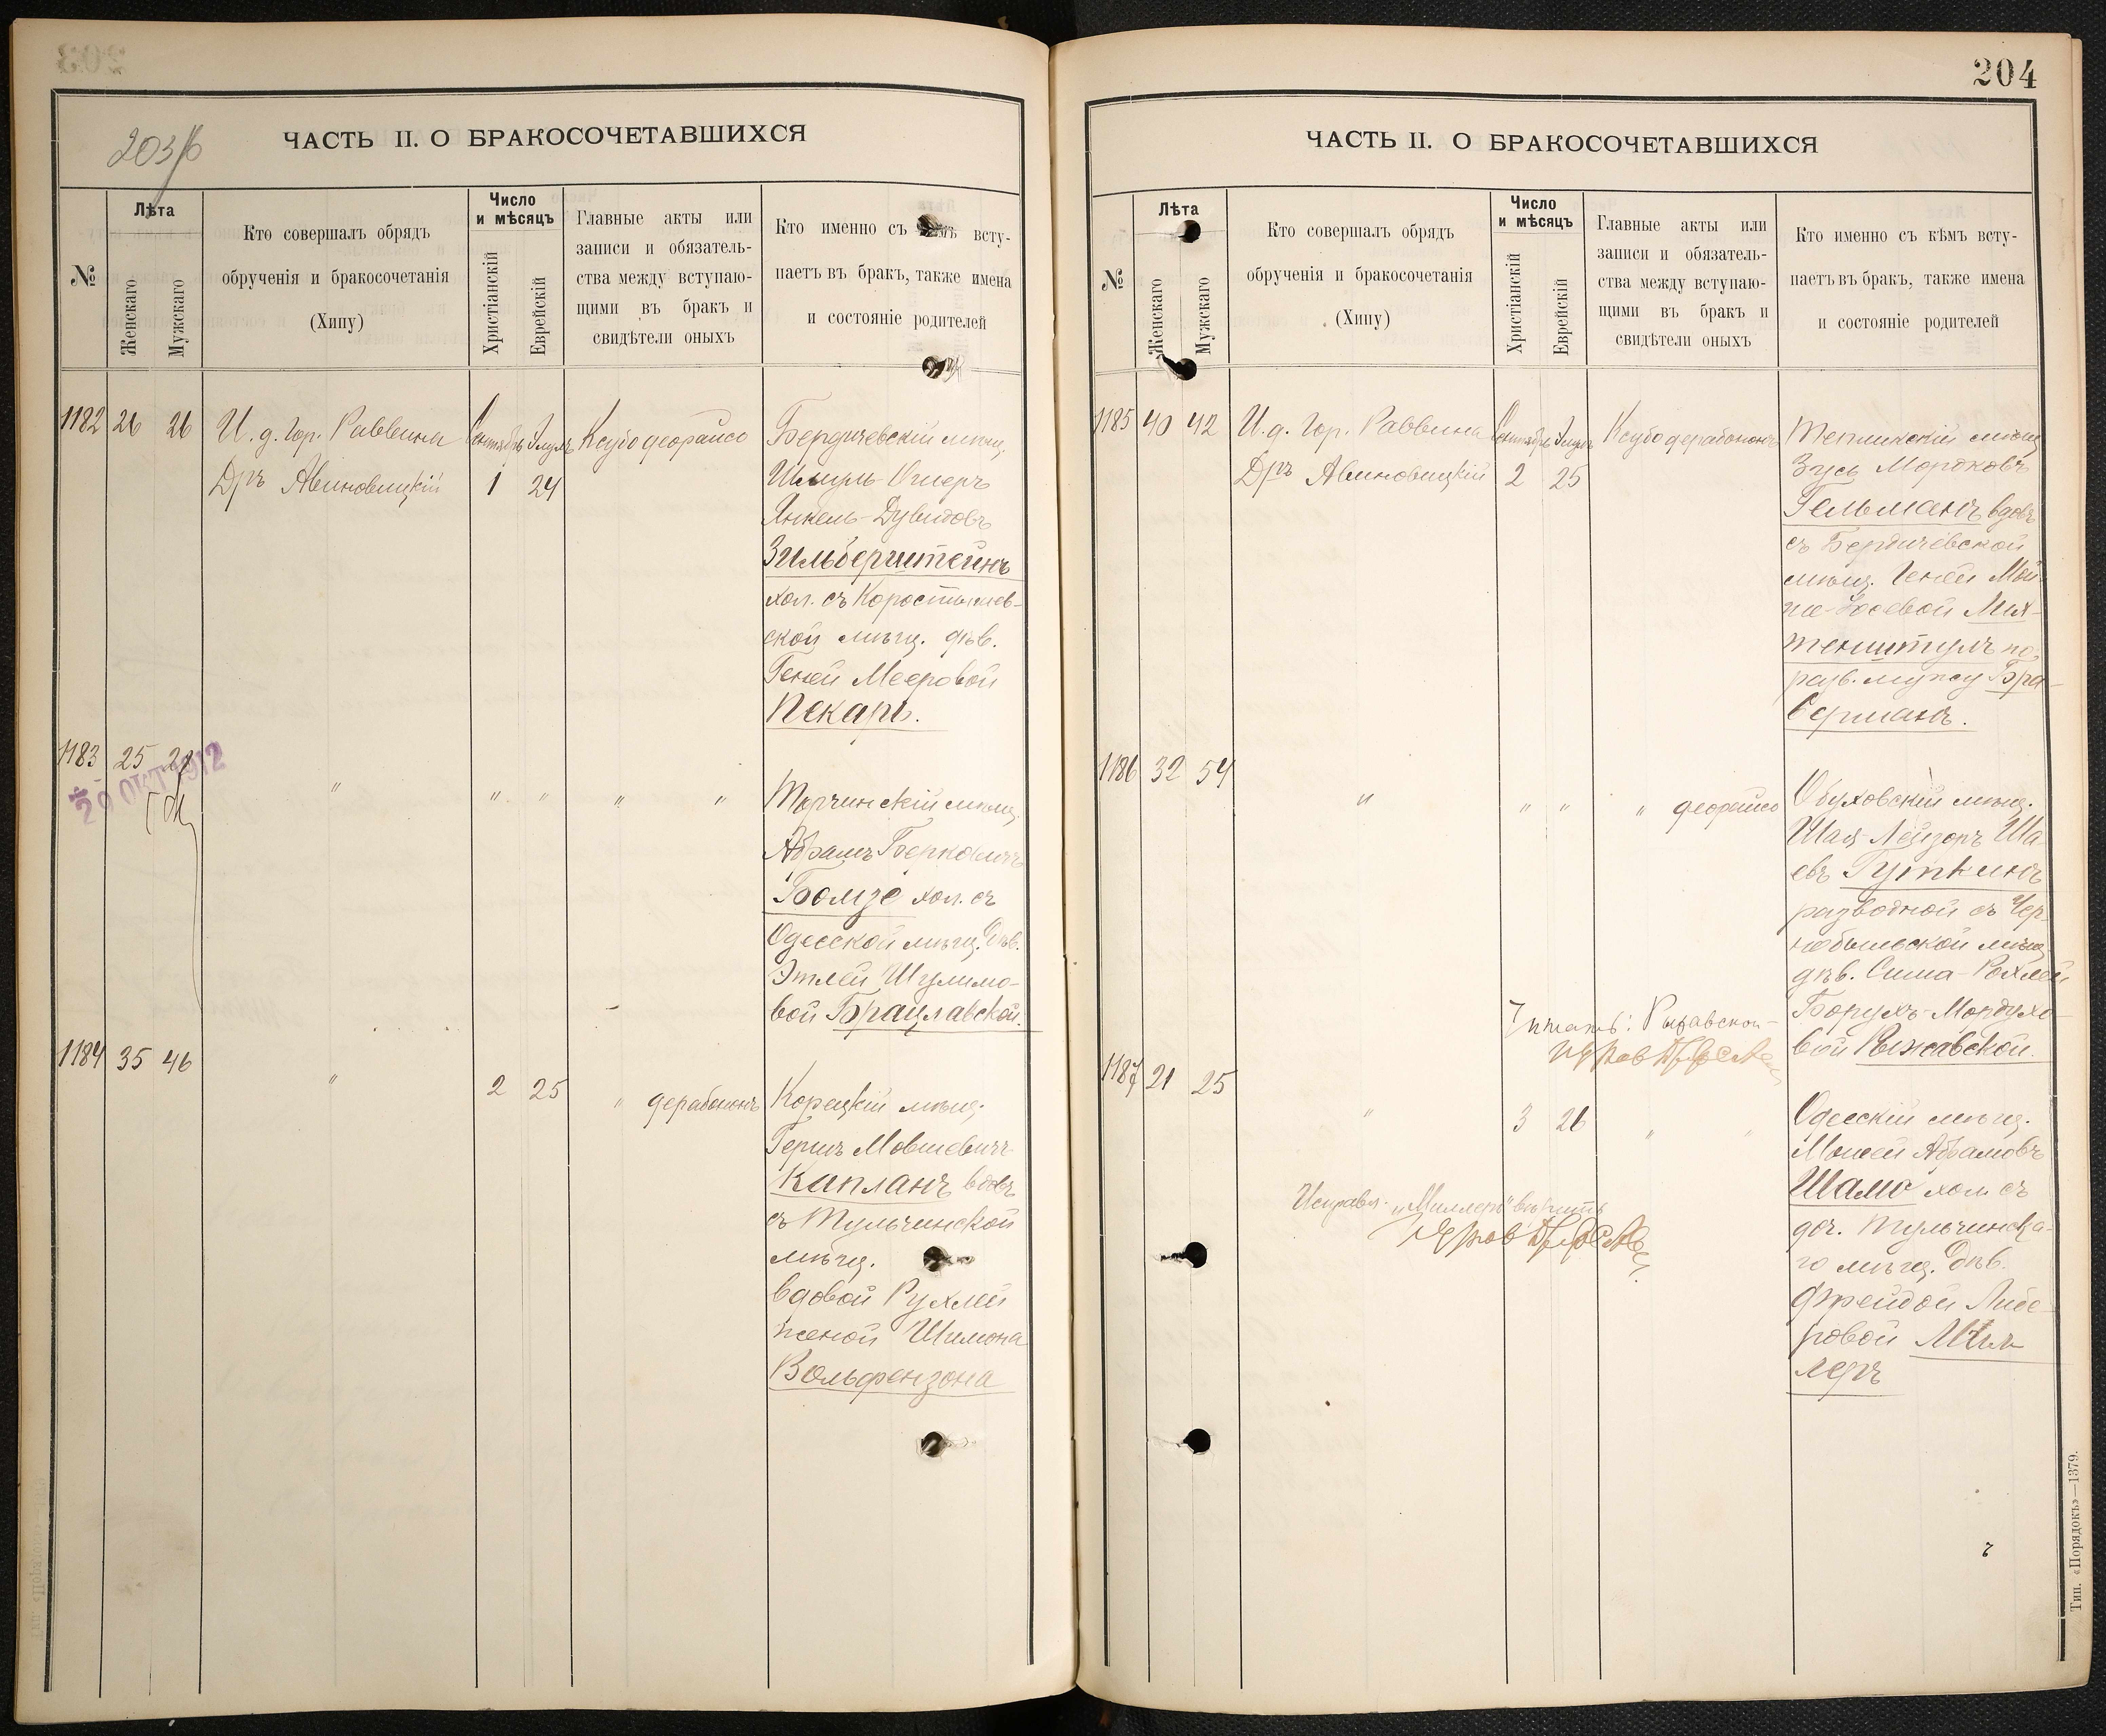 203
203/б
ЧАСТЬ II. О БРАКОСОЧЕТАВШИХСЯ
№
Лѣта
Женскаго
Мужскаго
Кто совершалъ обрядъ
обрученія и бракосочетанія
(Хипу)
Число
и мѣсяцъ
Христіанскій
Еврейскій
Главные акты или
записи и обязатель-
ства между вступаю-
щими въ бракъ и
свидѣтели оныхъ
Кто именно съ всту-
паетъ въ бракъ, также имена
и состояніе родителей
1182 26 26 И. д. Гор. Раввина Сентябрь Элулъ Ксубо деорайсо Бердичевскій мѣщ.
Дръ Авиновицкій 1 24 Шмуль-Ошеръ
Янкель-Дувидовъ
Зильберштейнъ
хол. съ Коростышев-
ской мѣщ. дѣв.
Геней Мееровой
Пекарь.
1183 25 29 " " " " " Торчинскій мѣщ.
20 ОКТ 1912
Абрамъ Берковичъ
Бомзе хол. съ
Одесской мѣщ. дѣв.
Этлей Шулимо-
вой Брацлавской.
1184 35 46 " 2 25 " дерабононъ Корецкій мѣщ.
Гершъ Мовшевичъ
Капланъ вдовъ
съ Тульчинской
мѣщ.
вдовой Рухлей
женой Шимона
Вольфензона
204
ЧАСТЬ II. О БРАКОСОЧЕТАВШИХСЯ
№
Лѣта
Женскаго
Мужскаго
Кто совершалъ обрядъ
обрученія и бракосочетанія
(Хипу)
Число
и мѣсяцъ
Христіанскій
Еврейскій
Главные акты или
записи и обязатель-
ства между вступаю-
щими въ бракъ и
свидѣтели оныхъ
Кто именно съ кѣмъ всту-
паетъ въ бракъ, также имена
и состояніе родителей
1185 40 42 И. д. Гор. Раввина Сентябрь Элулъ Ксубо дерабононъ Тепликскій мѣщ.
Дръ Авиновицкій 2 25 Зусь Мордковъ
Гельманъ вдовъ
съ Бердичевской
мѣщ. Геней Мой-
ше-Іосевой Лих-
тенштулъ по
разв. мужу Бра-
верманъ.
1186 32 54 " " " " деорайсо Обуховскій мѣщ.
Шая-Лейзоръ Ша-
евъ Гуткинъ
разводной съ Чер-
нобыльской мѣщ.
дѣв. Сима-Рохлей
Борухъ-Мордухо-
вой Рыжавской.
Читать: Рыжавской
1187 21 25 " 3 26 " " Одесскій мѣщ.
Мошей Абрамовъ
Шамо хол. съ
доч. Тульчинска-
го мѣщ. дѣв.
Фрейдой Либе-
ровой Мил-
леръ
Исправл. „Миллеръ" вѣрить
Тип. «Порядокъ»—1379.